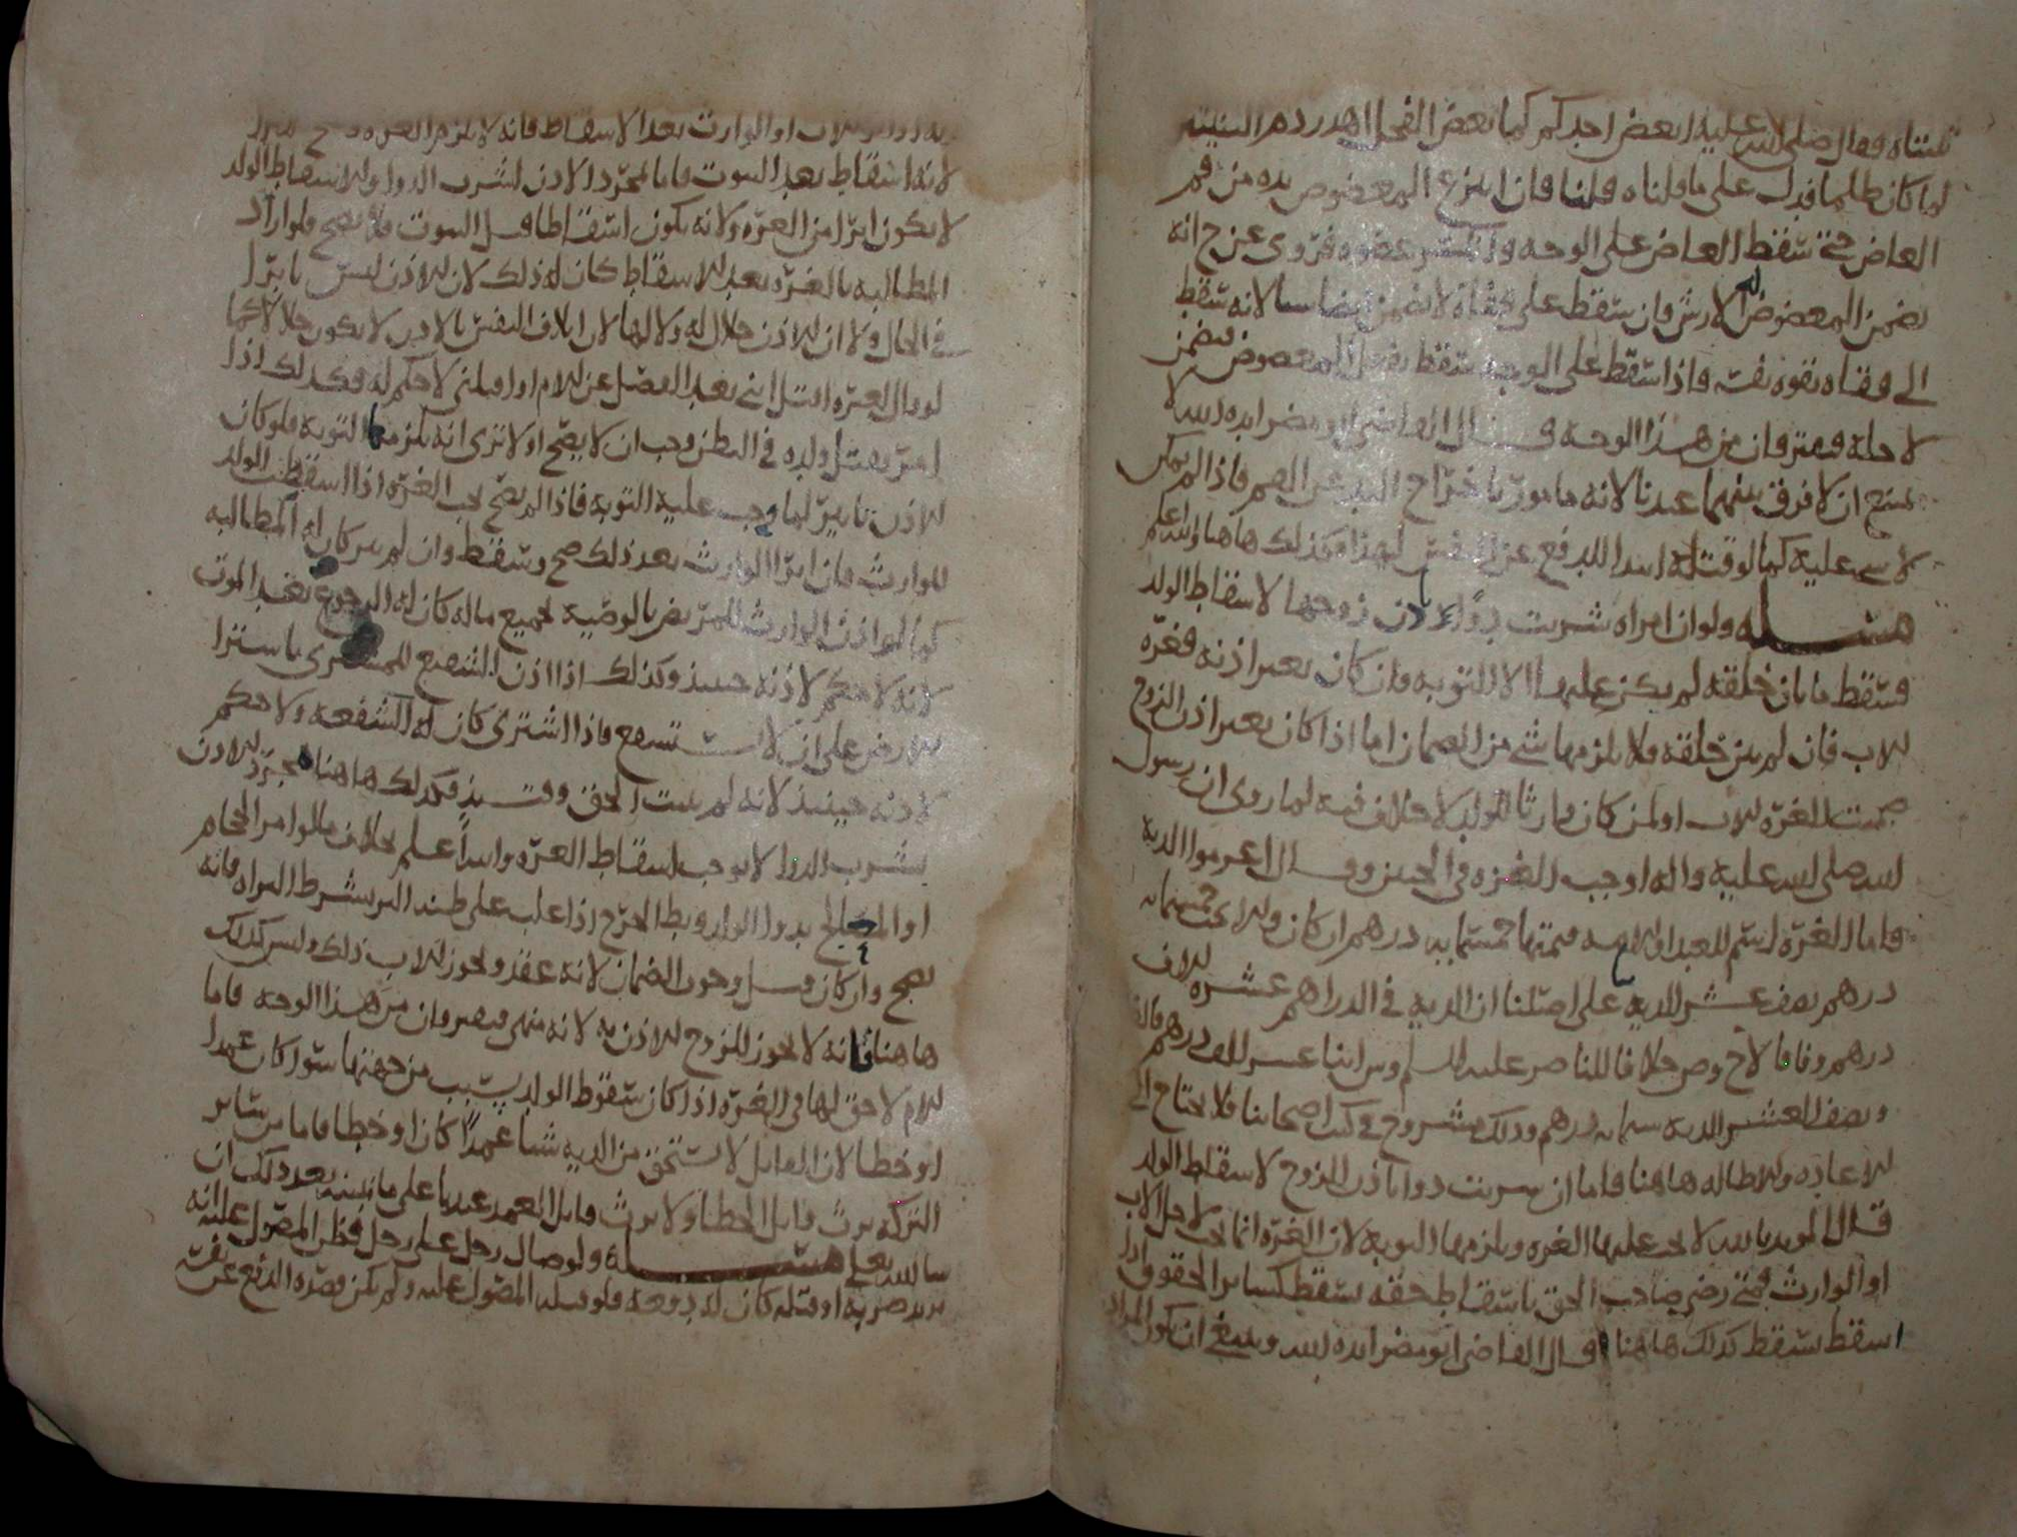 ثنيتاه فقال صلى الله عليه ايعض احدكم كما يعض الفحل اهدر دم الثنيته
لما كان ظلما فدل على ما قلناه قلنا فان انتزع المعضوض يده من فم
العاض حتى سقط العاض على الوجه وانكسر عضوه فروى عن ح انه
يضمن المعضوض له الارش وان سقط على قفاه لا يضمن لانه سقط
الى قفاه بقوه نفسه فاذا سقط على الوجه سقط بفعل المعضوض فيضمن
لاجله فيفترقان من هذا الوجه قال القاضى ابو مضر ايده الله لا
يمتنع ان لا فرق بينهما عندنا لانه مامور باخراج اليد عن الفم فاذا لم يمكن
لا شى عليه كما لو قتله ابتدا للدفع عن النفس لهذا وكذلك هاهنا والله اعلم
مسئله ولو ان امراه شربت دواء لاذن زوجها لاسقاط الولد
فسقط ما بان خلقته لم يكن عليها الا التوبه وان كان بغير اذنه فغره
للاب فان لم يبن خلقته فلا يلزمها شى من الضمان اما اذا كان بغير اذن الزوج
ضمنت الغره للاب او لمن كان وارثا للولد لا خلاف فيه لما روى ان رسول
الله صلى الله عليه واله اوجب الغره فى الجنين وقال اغرموا الديه
فاما الغره اسم للعبد او الامه قيمتها خمسمايه درهم ان كان ولدا يجب خمسمايه
درهم نصف عشر الديه على اصلنا ان الديه فى الدراهم عشره الاف
درهم وفاقا لاح وص خلافا للناصر عليه السلم وش اثنا عشر الف درهم قال
ونصف العشر الديه ستمايه درهم وذلك مشروح فى كتب اصحابنا فلا يحتاج الى
الاعاده والاطاله هاهنا فاما ان شربت دوا باذن الزوج لاسقاط الولد
قال المويد بالله لا يجب عليها الغره ويلزمها التوبه لان الغره انما تجب لاجل الاب
او الوارث فمتى رضى صاحب الحق باسقاط حقه سقط كساير الحقوق اذا
اسقط سقط كذلك هاهنا قال القاضى ابو مضر ايده الله وينبغى ان يكون المراد
الاب او الوارث بعد الاسقاط فانه لا يلزم الغره
لانه اسقاط بعد الثبوت فاما مجرد الاذن لشرب الدوا ولاسقاط الولد
لا يكون ابرا من الغره ولانه يكون اسقاطا قبل الثبوت فلا يصح فلو اراد
المطالبه بالغره بعد الاسقاط كان له ذلك لان الاذن ليس بابرا
فى الحال ولا ان الاذن حلال له ولا لها لان اتلاف النفس بالاذن لا يكون حلالا كما
لو قال لغيره اقتل ابنى بعد الفصل عن الام او اقتلنى لا حكم له فكذلك اذا
امر بقتل ولده فى البطن وجب ان لا يصح او لا ترى انه يلزمها التوبه فلو كان
للاذن تاثير لما وجب عليه التوبه فاذا لم يصح يجب الغره اذا اسقطت الولد
للوارث فان ابرا الوارث بعد ذلك صح وسقط وان لم يبر كان له المطالبه
كما لو اذن الوارث للمريض بالوصيه لجميع ماله كان له الرجوع بعد الموت
لانه لا حكم لاذنه حينيذ وكذلك اذا اذن الشفيع للمشترى باشترا
الارض على ان لا يستشفع فاذا اشترى كان له الشفعه ولا حكم
لاذنه حينيذ لانه لم يثبت الحق وقتيذ فكذلك هاهنا مجرد الاذن
بشرب الدوا لا يوجب اسقاط الغره والله اعلم بخلاف ما لو امر الحجام
او المعالج بدوا الوارد وبط الجرح اذا غلب على ظنه البر بشرط البراه فانه
يصح وان كان قبل وجوب الضمان لانه عقد ويجوز للاب ذلك وليس كذلك
هاهنا فانه لا يجوز للزوج الاذن به لانه منهى فيفترقان من هذا الوجه فاما
الام لا حق لها فى الغره اذا كان سقوط الولد بسبب من جهتها سوا كان عمدا
او خطا لان القاتل لا يستحق من الديه شيا عمدا كان او خطا فاما من ساير
التركه يرث قاتل الخطا ولا يرث قاتل العمد عندنا على ما نبينه بعد ذلك ان
شا الله تعالى مسئله ولو صال رجل على رجل فظن المصول عليه انه
يريد ضربه او قتله كان له دفعه فلو قتله المصول عليه ولم يكن قصده الدفع عن نفسه